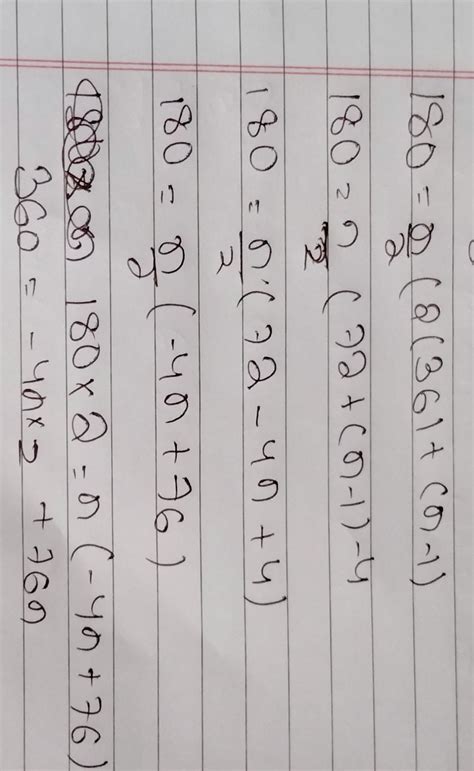 180 = n/2 (2(36)+(n-1)
180 = n/2 (72+(n-1)-4
180 = n/2 (72-4n+4)
180 = n/2 (-4n+76)
180×2=n(-4n+76)
360 = -4n×2 +76n